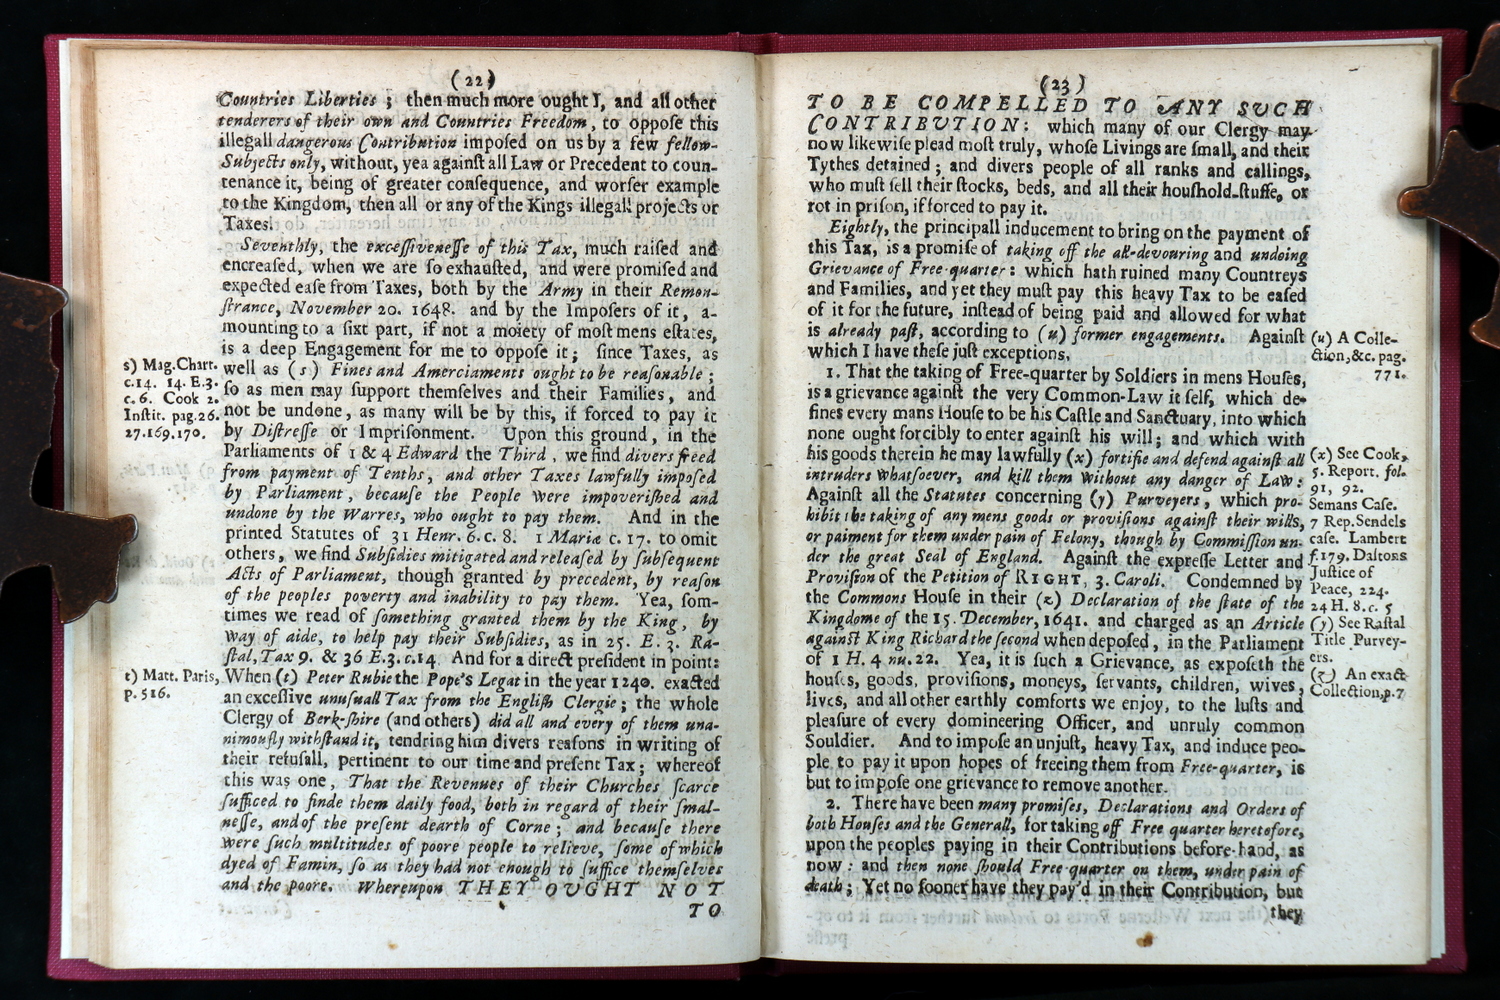 (22)
Countries Liberties ; then much more ought I, and all other
tenderers of their own and Countries Freedom, to oppoſe this
illegall dangerous Contribution impoſed on us by a few fellow-
Subjects only, without, yea againſt all Law or Precedent to coun-
tenance it, being of greater conſequence, and worſer example
to the Kingdom, then all or any of the Kings illegall projects or
Taxes.
Seventhly, the exceſſiveneſſe of this Tax, much raiſed and
encreaſed, when we are ſo exhauſted, and were promiſed and
expected eaſe from Taxes, both by the Army in their Remon-
ſtrance, November 20. 1648. and by the Impoſers of it, a-
mounting to a ſixt part, if not a moiety of moſt mens eſtates,
is a deep Engagement for me to oppoſe it; ſince Taxes, as
well as (s) Fines and Amerciaments ought to be reaſonable ;
ſo as men may ſupport themſelves and their Families, and
not be undone, as many will be by this, if forced to pay it
by Diſtreſſe or Impriſonment. Upon this ground, in the
Parliaments of 1 & 4 Edward the Third, we find divers freed
from payment of Tenths, and other Taxes lawfully impoſed
by Parliament, becauſe the People were impoveriſhed and
undone by the Warres, who ought to pay them. And in the
printed Statutes of 31 Henr. 6. c. 8. 1 Mariæ c. 17. to omit
others, we find Subſidies mitigated and releaſed by ſubſequent
Acts of Parliament, though granted by precedent, by reaſon
of the peoples poverty and inability to pay them. Yea, ſom-
times we read of ſomething granted them by the King, by
way of aide, to help pay their Subſidies, as in 25. E. 3. Ra-
ſtal, Tax 9. & 36 E.3.c.14 And for a direct preſident in point:
When (t) Peter Rubie the Pope's Legat in the year 1240. exacted
an exceſſive unuſuall Tax from the Engliſh Clergie ; the whole
Clergy of Berk-ſhire (and others) did all and every of them una-
nimouſly withſtand it, tendring him divers reaſons in writing of
their refuſall, pertinent to our time and preſent Tax ; whereof
this was one, That the Revenues of their Churches ſcarce
ſufficed to finde them daily food, both in regard of their ſmal-
neſſe, and of the preſent dearth of Corne ; and becauſe there
were ſuch multitudes of poore people to relieve, ſome of which
dyed of Famin, ſo as they had not enough to ſuffice themſelves
and the poore. Whereupon THEY OVGHT NOT
TO
s) Mag.Chart.
c.14. 14.E.3.
c.6. Cook 2.
Inſtit. pag.26.
27.169.170.
t) Matt. Paris,
p. 516.
(23)
TO BE COMPELLED TO ANY SVCH
CONTRIBVTION: which many of our Clergy may
now likewiſe plead moſt truly, whoſe Livings are ſmall, and their
Tythes detained ; and divers people of all ranks and callings,
who muſt ſell their ſtocks, beds, and all their houſhold-ſtuffe, or
rot in priſon, if forced to pay it.
Eightly, the principall inducement to bring on the payment of
this Tax, is a promiſe of taking off the all-devouring and undoing
Grievance of Free-quarter: which hath ruined many Countreys
and Families, and yet they muſt pay this heavy Tax to be eaſed
of it for the future, inſtead of being paid and allowed for what
is already paſt, according to (u) former engagements. Againſt
which I have theſe juſt exceptions.
1. That the taking of Free-quarter by Soldiers in mens Houſes,
is a grievance againſt the very Common-Law it ſelf, which de-
fines every mans Houſe to be his Caſtle and Sanctuary, into which
none ought forcibly to enter againſt his will ; and which with
his goods therein he may lawfully (x) fortifie and defend againſt all
intruders whatſoever, and kill them without any danger of Law:
Againſt all the Statutes concerning (y) Purveyers, which pro-
hibit the taking of any mens goods or proviſions againſt their wills,
or paiment for them under pain of Felony, though by Commiſſion un-
der the great Seal of England. Againſt the expreſſe Letter and
Proviſion of the Petition of RIGHT, 3. Caroli. Condemned by
the Commons Houſe in their (z) Declaration of the ſtate of the
Kingdome of the 15. December, 1641. and charged as an Article
againſt King Richard the ſecond when depoſed, in the Parliament
of 1 H. 4 nu. 22. Yea, it is ſuch a Grievance, as expoſeth the
houſes, goods, proviſions, moneys, ſervants, children, wives,
lives, and all other earthly comforts we enjoy, to the luſts and
pleaſure of every domineering Officer, and unruly common
Souldier. And to impoſe an unjuſt, heavy Tax, and induce peo-
ple to pay it upon hopes of freeing them from Free-quarter, is
but to impoſe one grievance to remove another.
2. There have been many promiſes, Declarations and Orders of
both Houſes and the Generall, for taking off Free quarter heretofore,
upon the peoples paying in their Contributions before-hand, as
now: and then none ſhould Free quarter on them, under pain of
death ; Yet no ſooner have they pay'd in their Contribution, but
they
(u) A Colle-
ction,&c. pag.
771.
(x) See Cook,
5. Report. fol.
91, 92.
Semans Caſe.
7 Rep. Sendels
caſe. Lambert
f.179. Daltons
Juſtice of
Peace, 224.
24 H. 8. c. 5
(y) See Raſtal
Title Purvey-
ers.
(z) An exact
Collection, p.7